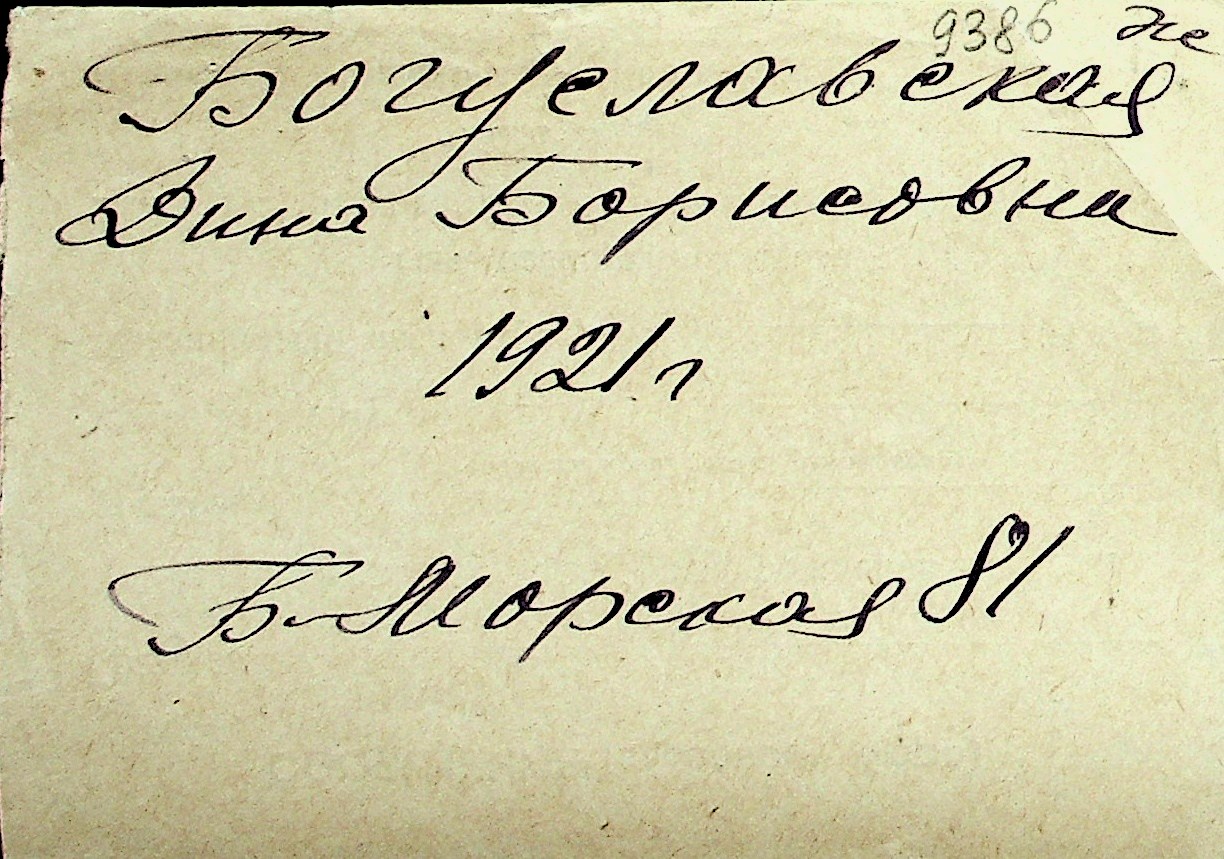 9386 же
Богуславская
Дина Борисовна
1921 г
Б-Морская 81